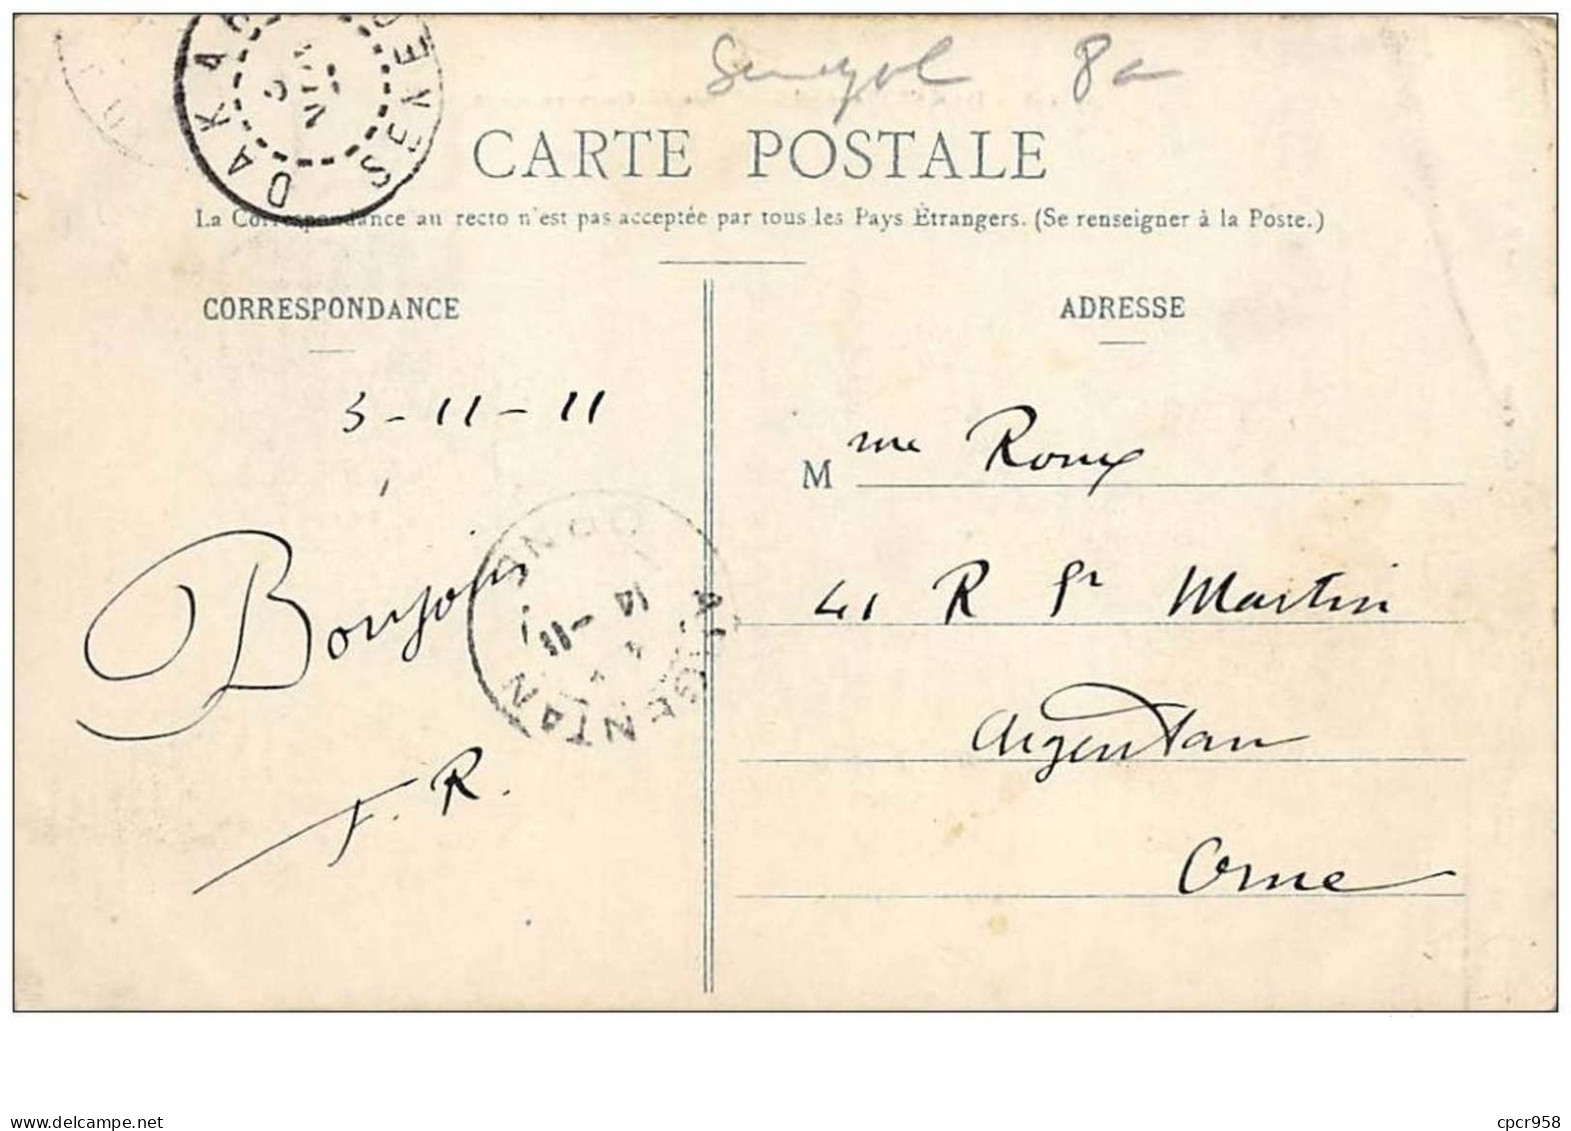 Senegal 8
DAKAR SENEG
CARTE POSTALE
La Correspondance au recto n'est pas acceptée par tous les Pays Étrangers. (Se renseigner à la Poste.)
CORRESPONDANCE
ADRESSE
3-11-11
Mme Roux
Bonjour
41 R St Martin
14 -11
ARGENTAN
Argentan
F. R.
Orne
www.delcampe.net
cpcr958